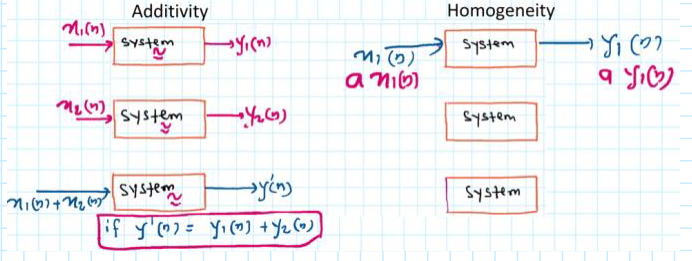 Additivity
x₁(n) system y₁(n)
x₂(n) system y₂(n)
x₁(n)+x₂(n) system y'(n)
if y'(n) = y₁(n) + y₂(n)
Homogeneity
x₁(n) system y₁(n)
a x₁(n) a y₁(n)
system
system